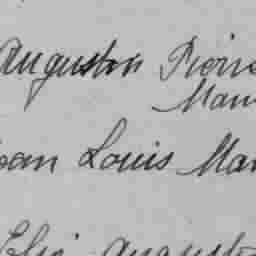 Augustin Pierre
Mari
Jean Louis Mar
Elie Auguste